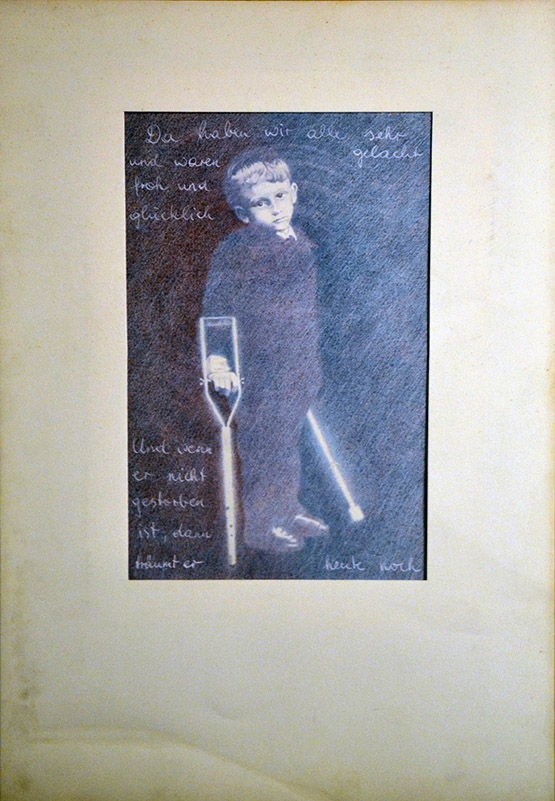 Da haben wir alle sehr
gelacht
und waren
froh und
glücklich
Und wenn
er nicht
gestorben
ist, dann
träumt er
heute noch